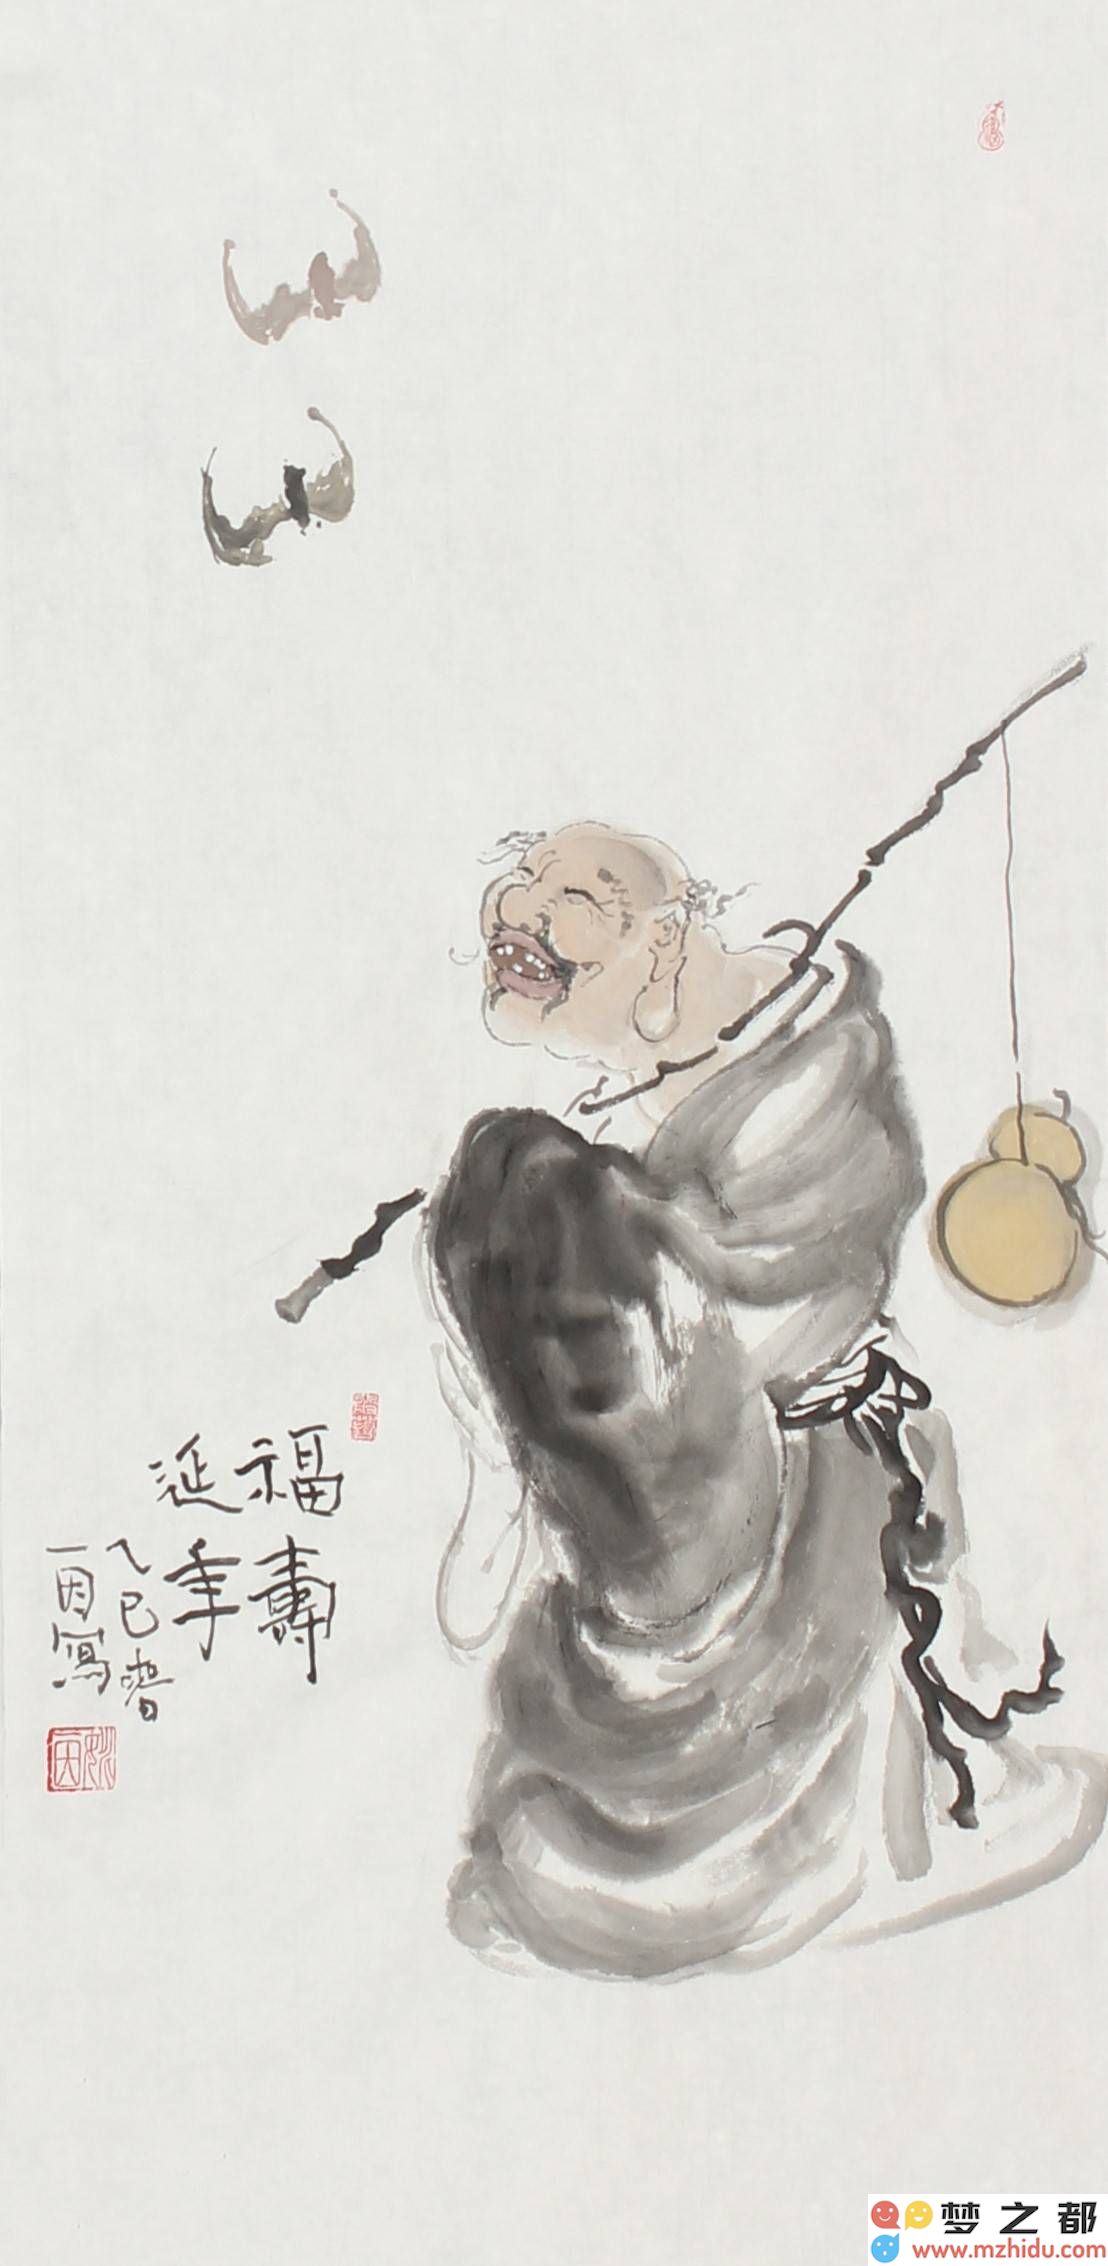 福壽
延年
乙巳春
一因寫
梦之都
www.mzhidu.com